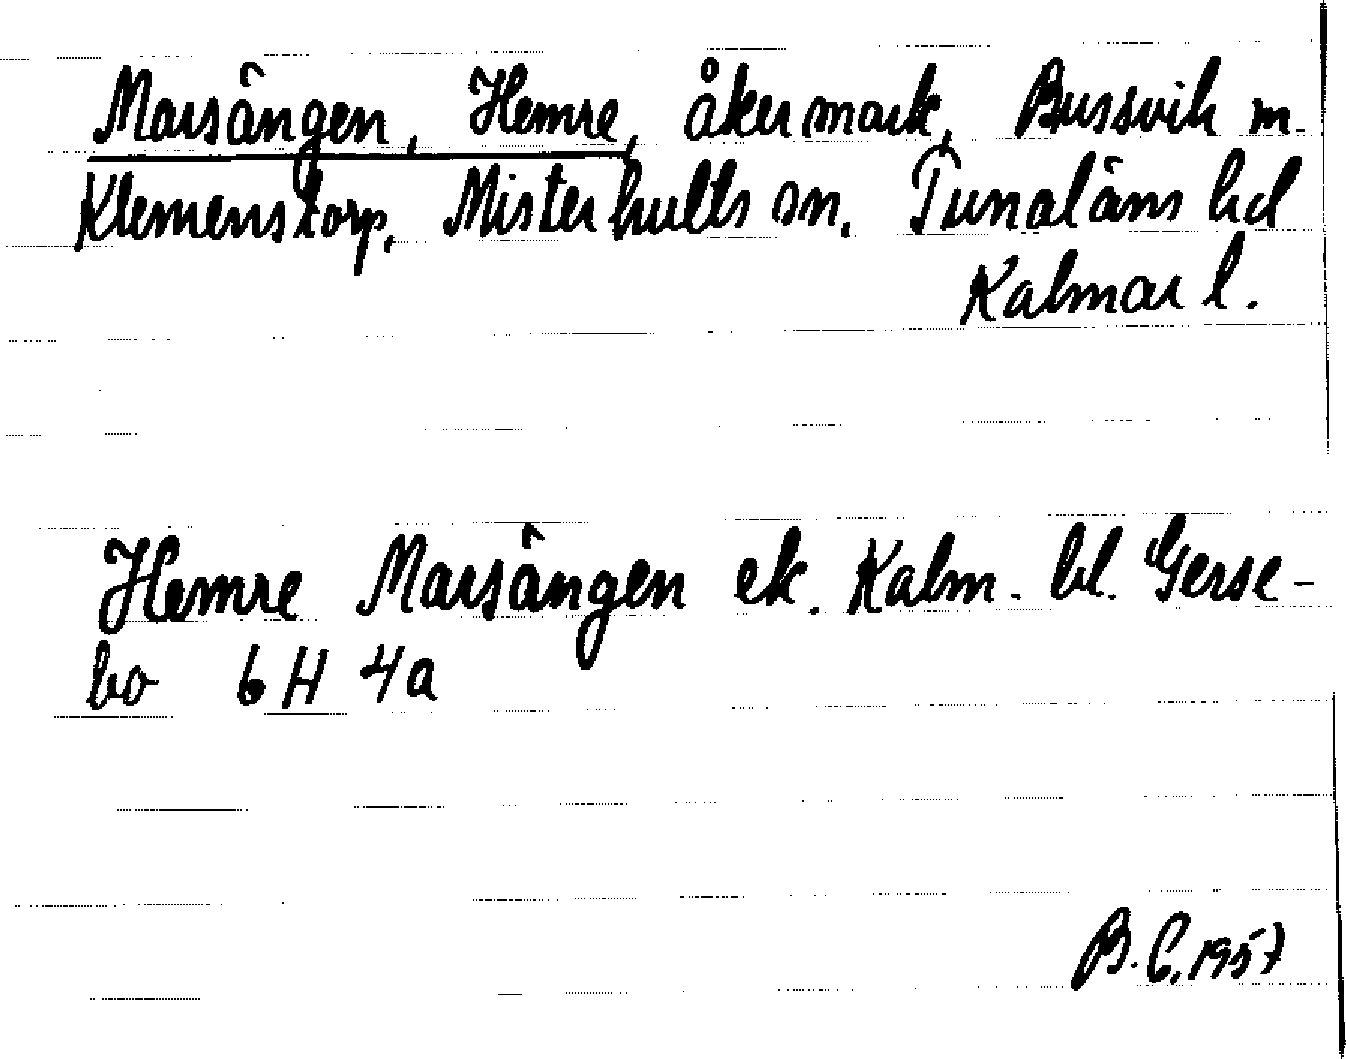 Marsängen, Hemre, åkermark, Bussvik m.
Klemenstorp, Misterhults sn, Tunaläns hd
Kalmar l.
Hemre Marsängen ek. Kalm. bl. Gerse-
bo 6H 4a
B.C. 1957